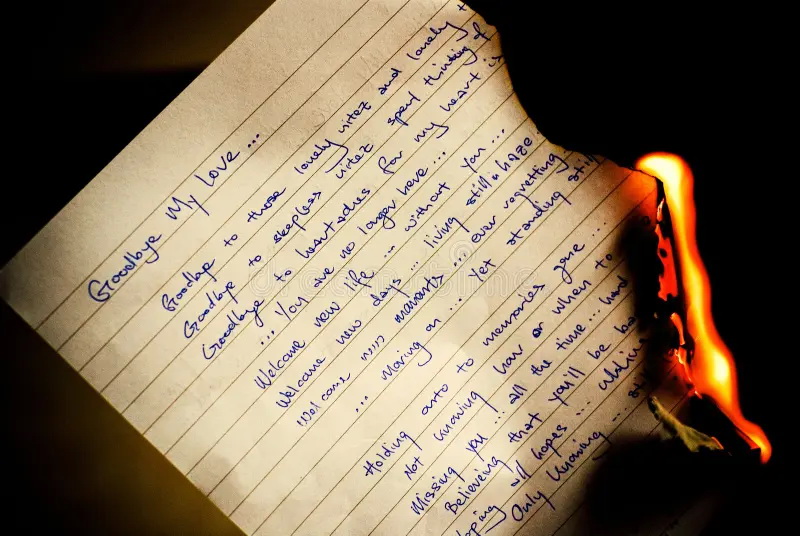 Goodbye My Love...
Goodbye to those lonely nitez and lonely
Goodbye to sleepless nitez spend thinking of
Goodbye to heartaches for my heart is
... You are no longer here...
Welcome new life ... without you...
Welcome new days ... living still in haze
Welcome new moments ... ever regretting
... Moving on ... Yet standing still
Holding onto to memories gone ...
Not knowing how or when to
Missing you ... all the time ... hard
Believeing that you'll be ba
oping all hopes ...
Only Knowing ...